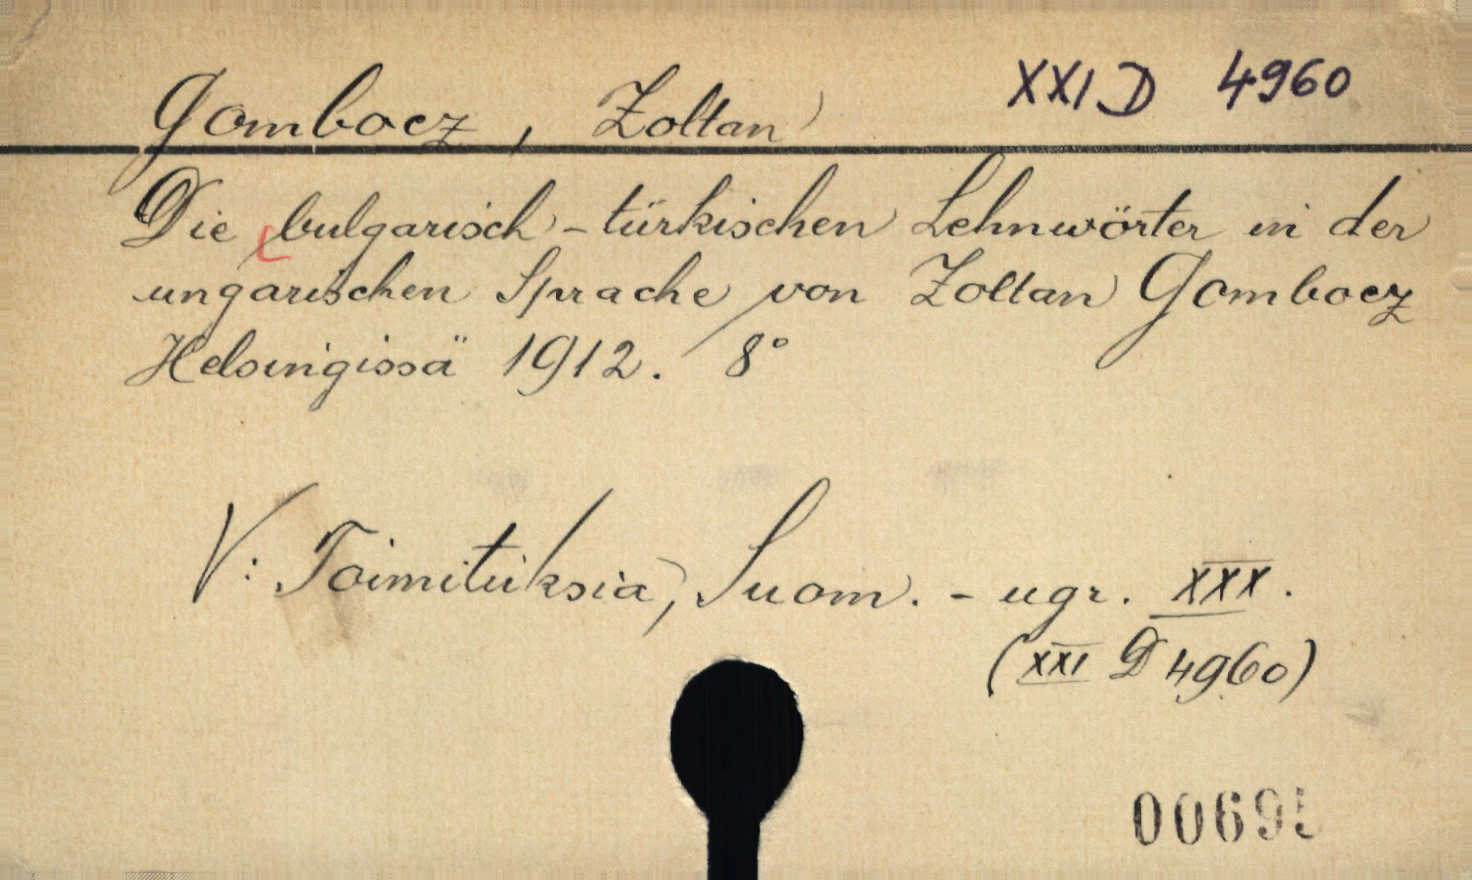 XXI D 4960
Gombocz, Zoltan
Die bulgarisch-türkischen Lehnwörter in der
ungarischen Sprache von Zoltan Gombocz
Helsingissä 1912. 8°
V: Toimituksia, Suom.-ugr. XXX.
(XXI D 4960)
00695